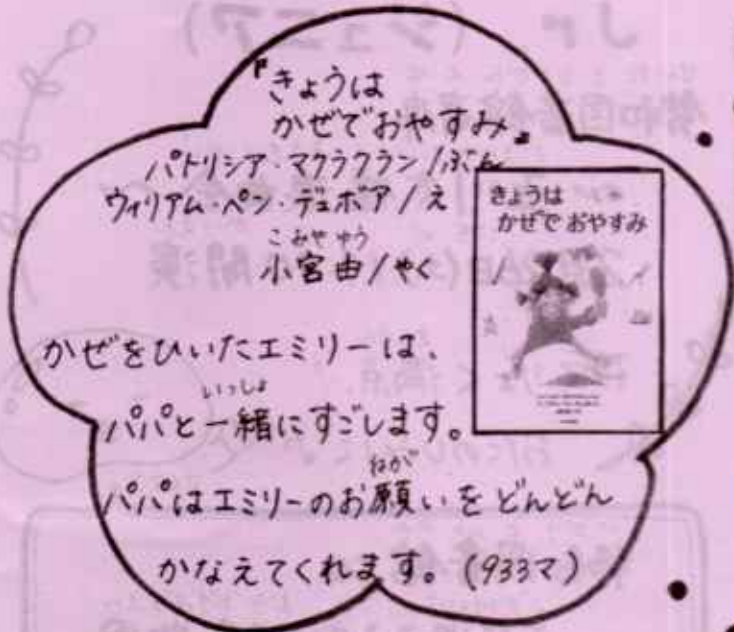 『きょうは
かぜでおやすみ』
パトリシア・マクラクラン/ぶん
ウィリアム・ペン・デュボア/え
こみやゆう
小宮由/やく
きょうは
かぜで おやすみ
かぜをひいたエミリーは、
いっしょ
パパと一緒にすごします。
ねが
パパはエミリーのお願いをどんどん
かなえてくれます。(933マ)